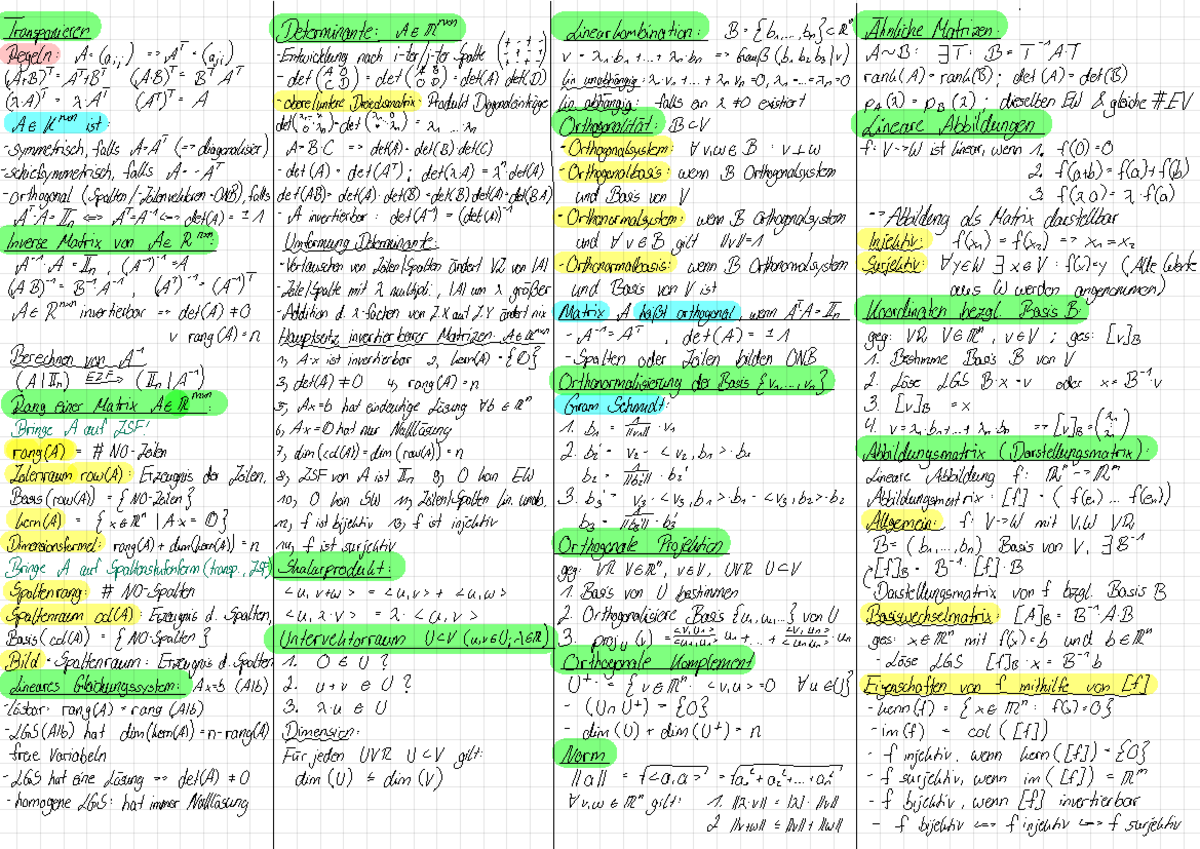 Transponieren
Regeln: A=(aᵢⱼ) => Aᵀ = (aⱼᵢ)
(A+B)ᵀ = Aᵀ+Bᵀ (A·B)ᵀ = Bᵀ Aᵀ
(λA)ᵀ = λAᵀ (Aᵀ)ᵀ = A
A ∈ ℝⁿˣⁿ ist:
- symmetrisch, falls A=Aᵀ (=> diagonalisier)
- schiefsymmetrisch, falls A = -Aᵀ
- orthogonal (Spalten/Zeilenvektoren = ONB), falls
Aᵀ·A = 𝕀ₙ <=> Aᵀ=A⁻¹ <=> det(A) = ±1
Inverse Matrix von A∈ℝⁿˣⁿ:
A⁻¹·A = 𝕀ₙ , (A⁻¹)⁻¹ = A
(AB)⁻¹ = B⁻¹A⁻¹, (Aᵀ)⁻¹ = (A⁻¹)ᵀ
A∈ℝⁿˣⁿ invertierbar => det(A) ≠ 0
v rang(A) = n
Berechnen von A⁻¹
(A|𝕀ₙ) EZF→ (𝕀ₙ|A⁻¹)
Rang einer Matrix A∈ℝᵐˣⁿ:
Bringe A auf ZSF!
rang(A) = # NO-Zeilen
Zeilenraum row(A): Erzeugnis der Zeilen,
Basis(row(A)) = {NO-Zeilen}
kern(A) = {x∈ℝⁿ | A·x = 𝕆}
Dimensionsformel: rang(A) + dim(kern(A)) = n
Bringe A auf Spaltenstufenform (transp., ZSF)
Spaltenrang: # NO-Spalten
Spaltenraum col(A): Erzeugnis d. Spalten,
Basis(col(A)) = {NO-Spalten}
Bild = Spaltenraum: Erzeugnis d. Spalten
Lineares Gleichungssystem: Ax=b (A|b)
- lösbar: rang(A) = rang(A|b)
- LGS(A|b) hat dim(kern(A)) = n-rang(A)
freie Variabeln
- LGS hat eine Lösung => det(A) ≠ 0
- homogene LGS: hat immer Nulllösung
Determinante: A∈ℝⁿˣⁿ
- Entwicklung nach i-ter/j-ter Spalte (+ - + / - + - / + - +)
- det(A B / 0 D) = det(A 0 / C D) = det(A) det(D)
- obere/untere Dreiecksmatrix: Produkt Diagonaleinträge
det(λ₁ * / 0 λₙ) = det(λ₁ 0 / * λₙ) = λ₁ ... λₙ
A=B·C => det(A) = det(B)·det(C)
- det(A) = det(Aᵀ); det(λA) = λⁿ det(A)
det(AB) = det(A)·det(B) = det(B)·det(A) = det(BA)
- A invertierbar: det(A⁻¹) = (det(A))⁻¹
Umformung Determinante:
- Vertauschen von Zeilen/Spalten ändert VZ von |A|
- Zeile/Spalte mit λ multipli., |A| um λ größer
- Addition d. λ-fachen von Z.X auf Z.Y ändert nix
Hauptsatz invertierbarer Matrizen: A∈ℝⁿˣⁿ
1, A·x ist invertierbar 2, kern(A) = {𝕆}
3, det(A) ≠ 0 4, rang(A) = n
5, Ax=b hat eindeutige Lösung ∀b∈ℝⁿ
6, Ax=𝕆 hat nur Nulllösung
7, dim(col(A)) = dim(row(A)) = n
8, ZSF von A ist 𝕀ₙ 9, 0 kein EW
10, 0 kein SW 11, Zeilen/Spalten lin. unab.
12, f ist bijektiv 13, f ist injektiv
14, f ist surjektiv
Skalarprodukt:
<u, v+w> = <u,v> + <u,w>
<u, λ·v> = λ·<u,v>
Untervektorraum U⊂V (u,v∈U; λ∈ℝ)
1. 0 ∈ U ?
2. u+v ∈ U ?
3. λ·u ∈ U
Dimension:
Für jeden UVR U⊂V gilt:
dim(U) ≤ dim(V)
Linearkombination: B={b₁,...,bₙ}⊂ℝⁿ
v = λ₁·b₁+...+λₙ·bₙ => Gauß(b₁ b₂ b₃|v)
lin. unabhängig: λ₁v₁+...+λₙvₙ=0, λ₁=...=λₙ=0
lin. abhängig: falls ein λ≠0 existiert
Orthogonalität: B⊂V
- Orthogonalsystem: ∀v,w∈B : v⊥w
- Orthogonalbasis: wenn B Orthogonalsystem
und Basis von V
- Orthonormalsystem: wenn B Orthogonalsystem
und ∀v∈B gilt ||v||=1
- Orthonormalbasis: wenn B Orthonormalsystem
und Basis von V ist
Matrix A heißt orthogonal, wenn Aᵀ·A = 𝕀ₙ
- A⁻¹ = Aᵀ , det(A) = ±1
- Spalten oder Zeilen bilden ONB
Orthonormalisierung der Basis {v₁,...,vₙ}
Gram Schmidt:
1. b₁ = 1/||v₁|| · v₁
2. b₂' = v₂ - <v₂,b₁>·b₁
b₂ = 1/||b₂'|| · b₂'
3. b₃' = v₃ - <v₃,b₁>·b₁ - <v₃,b₂>·b₂
b₃ = 1/||b₃'|| · b₃'
Orthogonale Projektion
geg: VR V∈ℝⁿ, v∈V, UVR U⊂V
1. Basis von U bestimmen
2. Orthogonalisiere Basis {u₁,u₂...} von U
3. projᵤ(v) = <v,u₁>/<u₁,u₁> u₁ + ... + <v,uₙ>/<uₙ,uₙ> · uₙ
Orthogonale Komplement
U⊥ = {v∈ℝⁿ: <v,u>=0 ∀u∈U}
- (U∩U⊥) = {0}
- dim(U) + dim(U⊥) = n
Norm
||a|| = √<a,a> = √a₁²+a₂²+...+aₙ²
∀v,w∈ℝⁿ gilt: 1. ||λ·v|| = |λ|·||v||
2. ||v+w|| ≤ ||v||+||w||
Ähnliche Matrizen:
A~B: ∃T: B=T⁻¹A·T
rank(A) = rank(B); det(A) = det(B)
p_A(λ) = p_B(λ); dieselben EW & gleiche #EV
Lineare Abbildungen
f: V->W ist linear, wenn 1. f(0)=0
2. f(a+b) = f(a)+f(b)
3. f(λa) = λ·f(a)
=> Abbildung als Matrix darstellbar
Injektiv: f(x₁) = f(x₂) => x₁=x₂
Surjektiv: ∀y∈W ∃x∈V: f(x)=y (Alle Werte
aus W werden angenommen)
Koordinaten bezgl. Basis B:
geg: VR V∈ℝⁿ, v∈V ; ges: [v]_B
1. Bestimme Basis B von V
2. Löse LGS B·x=v oder x=B⁻¹·v
3. [v]_B = x
4. v=λ₁·b₁+...+λₙ·bₙ => [v]_B = (λ₁ ⋮ λₙ)
Abbildungsmatrix (Darstellungsmatrix):
Lineare Abbildung f: ℝⁿ -> ℝᵐ
Abbildungsmatrix: [f] = (f(e₁) ... f(eₙ))
Allgemein: f: V->W mit V,W VR,
B=(b₁,...,bₙ) Basis von V, ∃B⁻¹
[f]_B = B⁻¹·[f]·B
Darstellungsmatrix von f bzgl. Basis B
Basiswechselmatrix: [A]_B = B⁻¹·A·B
ges: x∈ℝⁿ mit f(x)=b und b∈ℝⁿ
- Löse LGS [f]_B·x = B⁻¹b
Eigenschaften von f mithilfe von [f]
- kern(f) = {x∈ℝⁿ: f(x)=0}
- im(f) = col([f])
- f injektiv, wenn kern([f]) = {0}
- f surjektiv, wenn im([f]) = ℝᵐ
- f bijektiv, wenn [f] invertierbar
- f bijektiv <=> f injektiv <=> f surjektiv